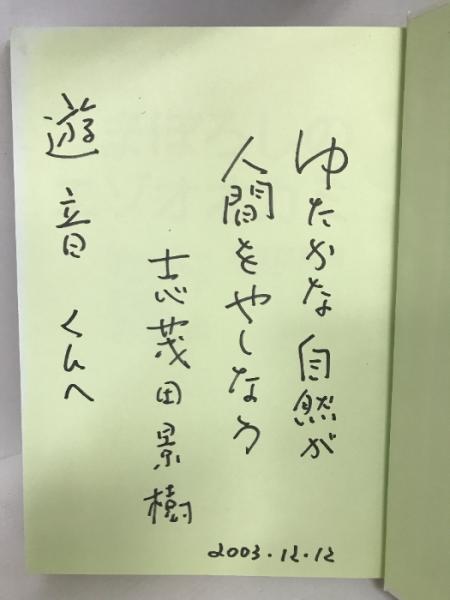 ゆたかな自然が
人間をやしなう
志茂田景樹
遊音くんへ
2003.12.12